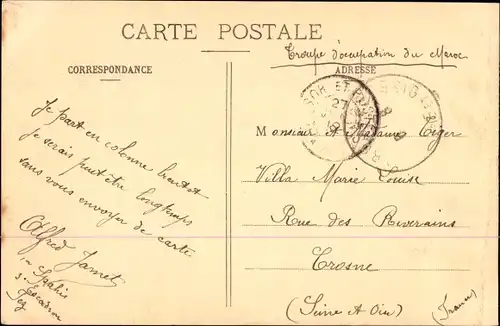 CARTE POSTALE
Troupe d'occupation du Maroc
CORRESPONDANCE
ADRESSE
Je part en colonne bientot
je serais peut être longtemps
sans vous envoyer de carte
Alfred Jamet
Spahis
5e Escadron
Fez
Monsieur et Madame Tiger
Villa Marie Louise
Rue des Riverains
Crosne
(Seine et Oise)
(France)